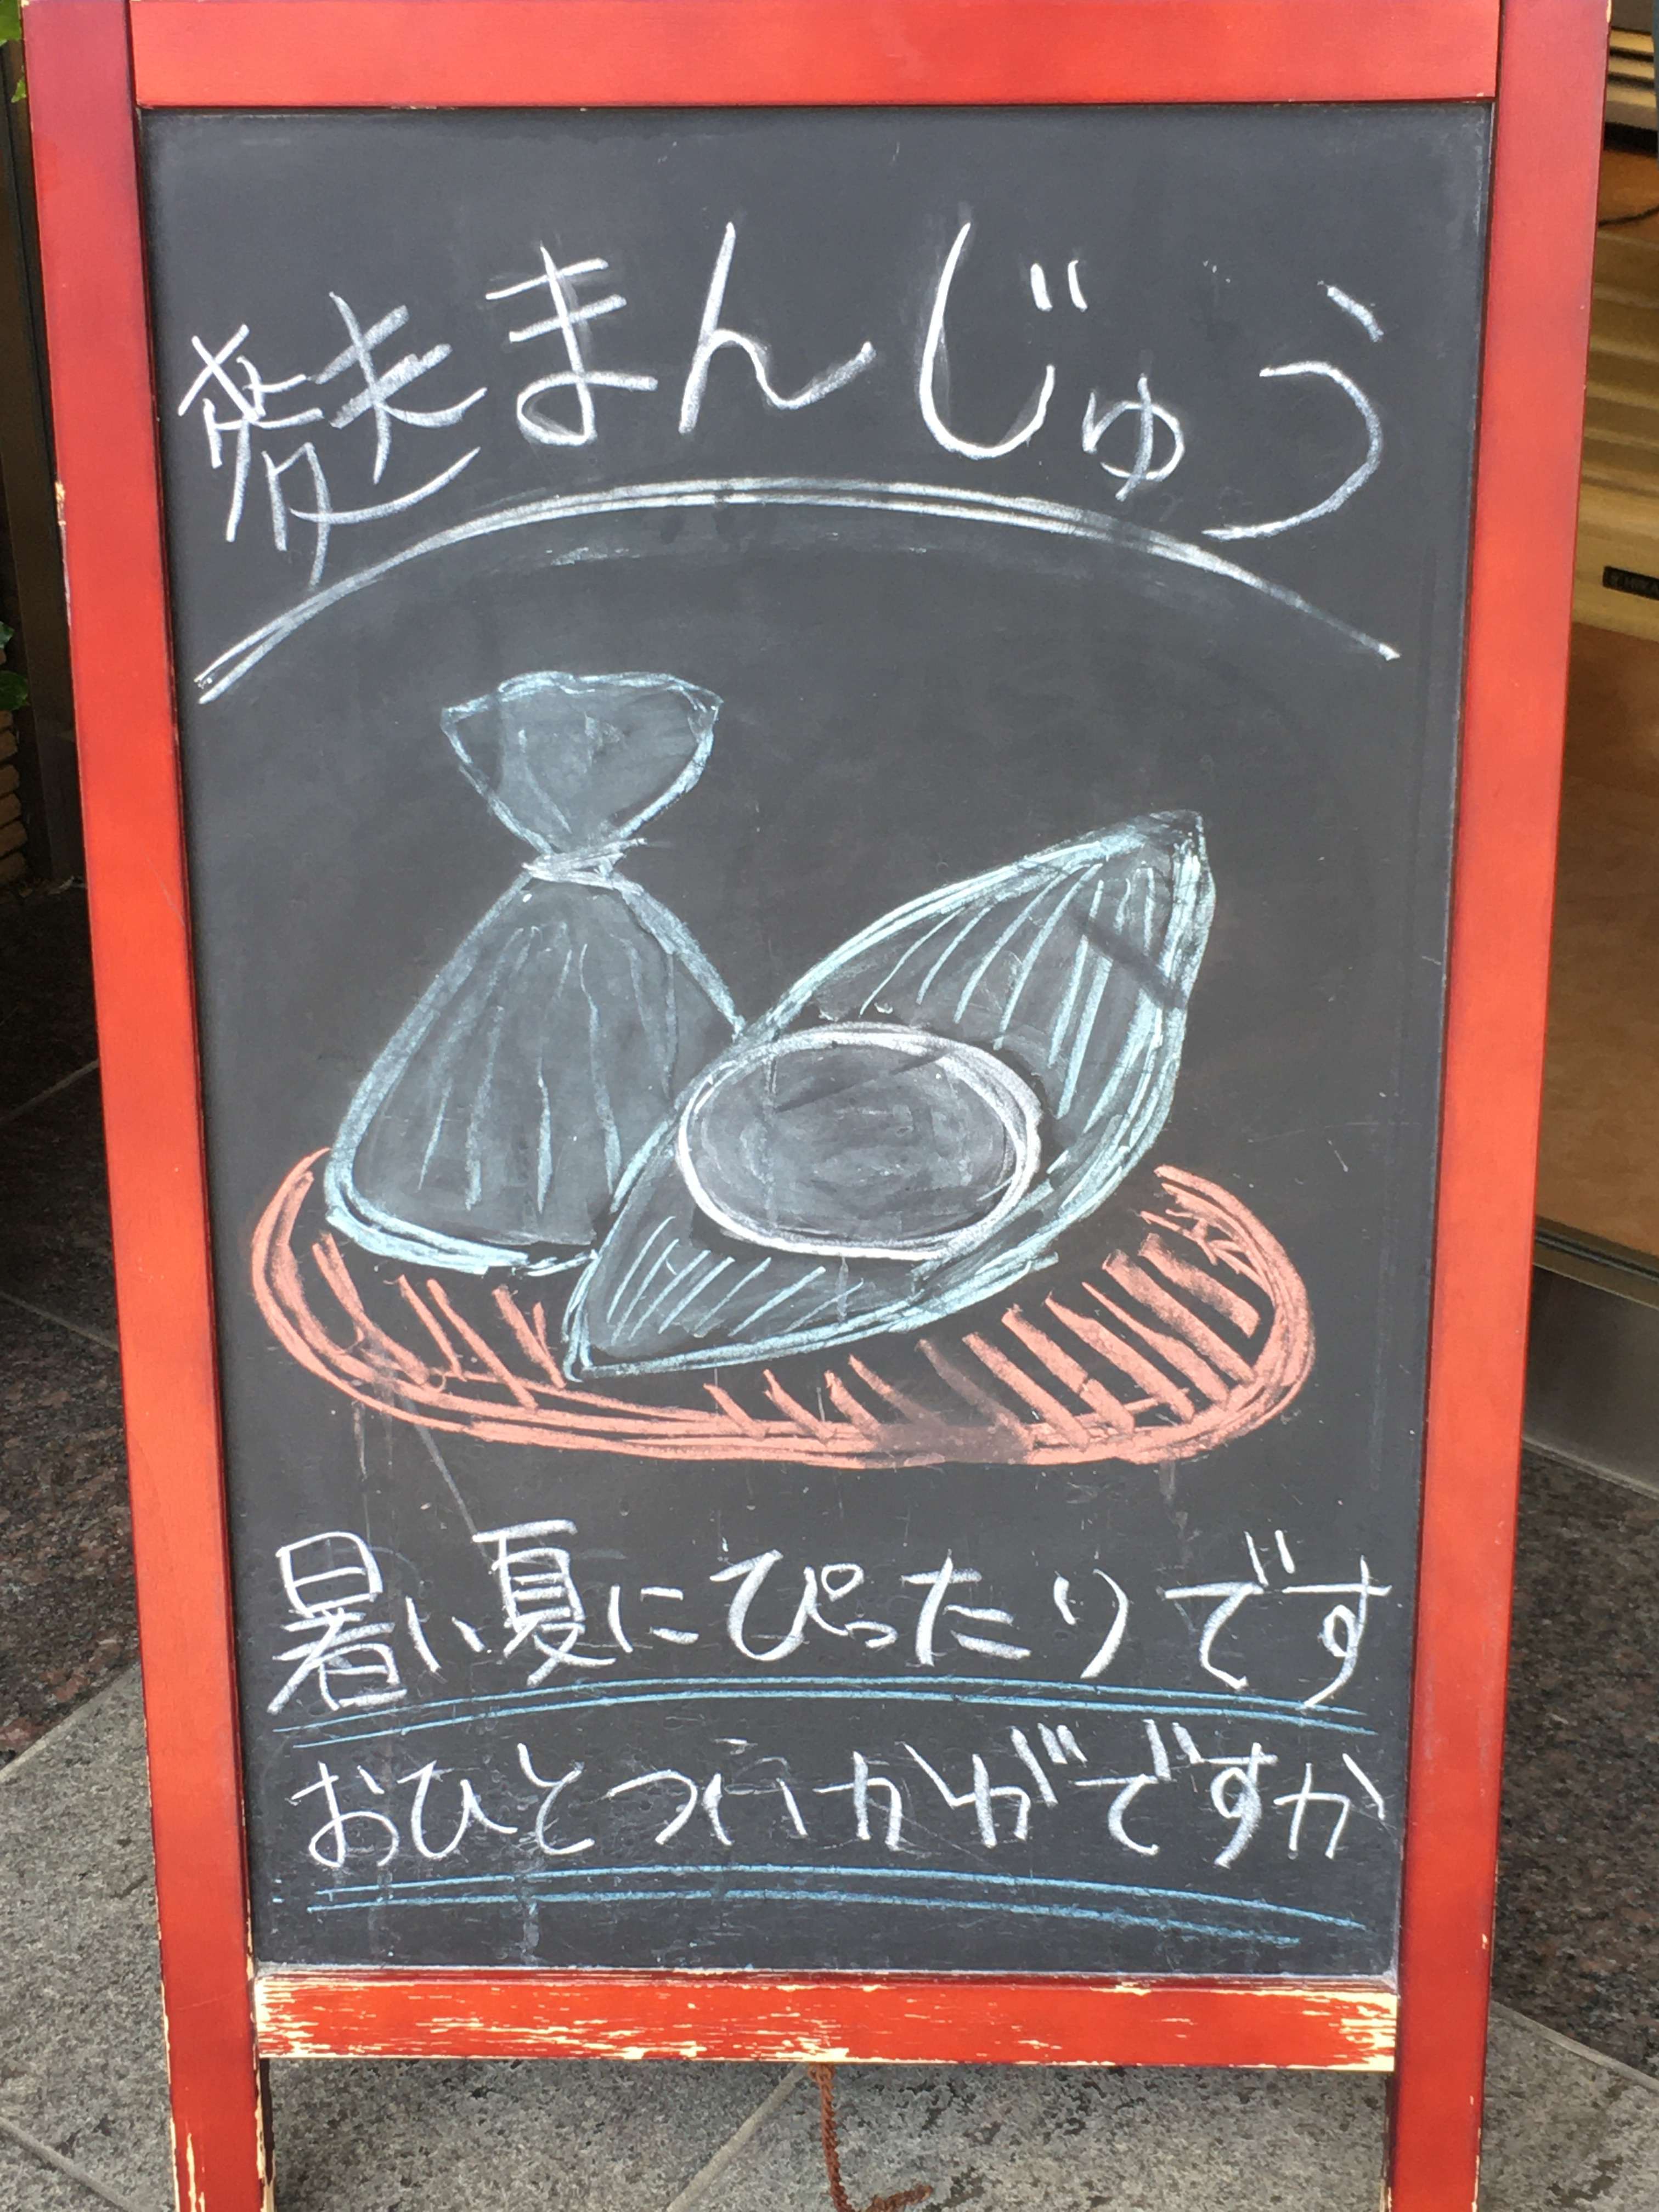 麩まんじゅう
暑い夏にぴったりです
おひとついかがですか